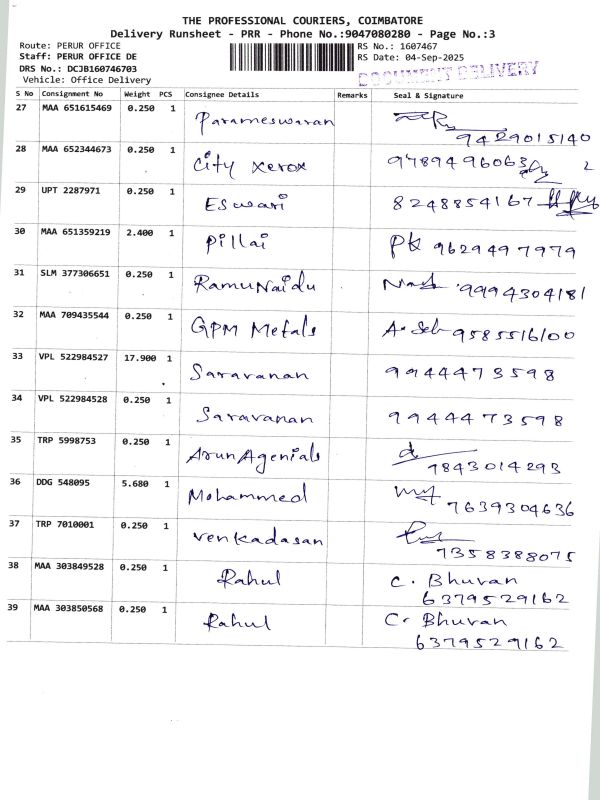 THE PROFESSIONAL COURIERS, COIMBATORE
Delivery Runsheet - PRR - Phone No.:9047080280 - Page No.:3
Route: PERUR OFFICE
Staff: PERUR OFFICE DE
DRS No.: DCJB160746703
Vehicle: Office Delivery
RS No.: 1607467
RS Date: 04-Sep-2025
DOCUMENT DELIVERY
S No Consignment No Weight PCS Consignee Details Remarks Seal & Signature
27 MAA 651615469 0.250 1 Parameswaran 9429015140
28 MAA 652344673 0.250 1 City xerox 9789496063 2
29 UPT 2287971 0.250 1 Eswari 8248854167
30 MAA 651359219 2.400 1 Pillai PK 9629497979
31 SLM 377306651 0.250 1 RamuNaidu 9994304181
32 MAA 709435544 0.250 1 GPM Metals 9585516100
33 VPL 522984527 17.900 1 Saravanan 9944473598
34 VPL 522984528 0.250 1 Saravanan 9944473598
35 TRP 5998753 0.250 1 ArunAgenials 9843014293
36 DDG 548095 5.680 1 Mohammed 7639304636
37 TRP 7010001 0.250 1 Venkadasan 7358388075
38 MAA 303849528 0.250 1 Rahul C. Bhuvan
6379529162
39 MAA 303850568 0.250 1 Rahul C. Bhuvan
6379529162